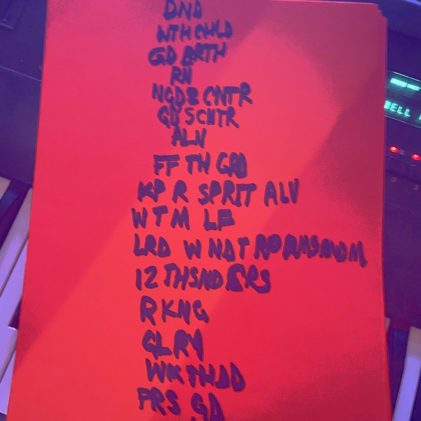 DND
WTH CHLD
GD BRTH
RN
NGDS CNTR
GD SCNTR
ALV
FF TH GRD
KP R SPRIT ALV
W T M LF
LRD W NDT
12 THSND
R KNG
GLRY
WK TH DD
PRS GD
BELL